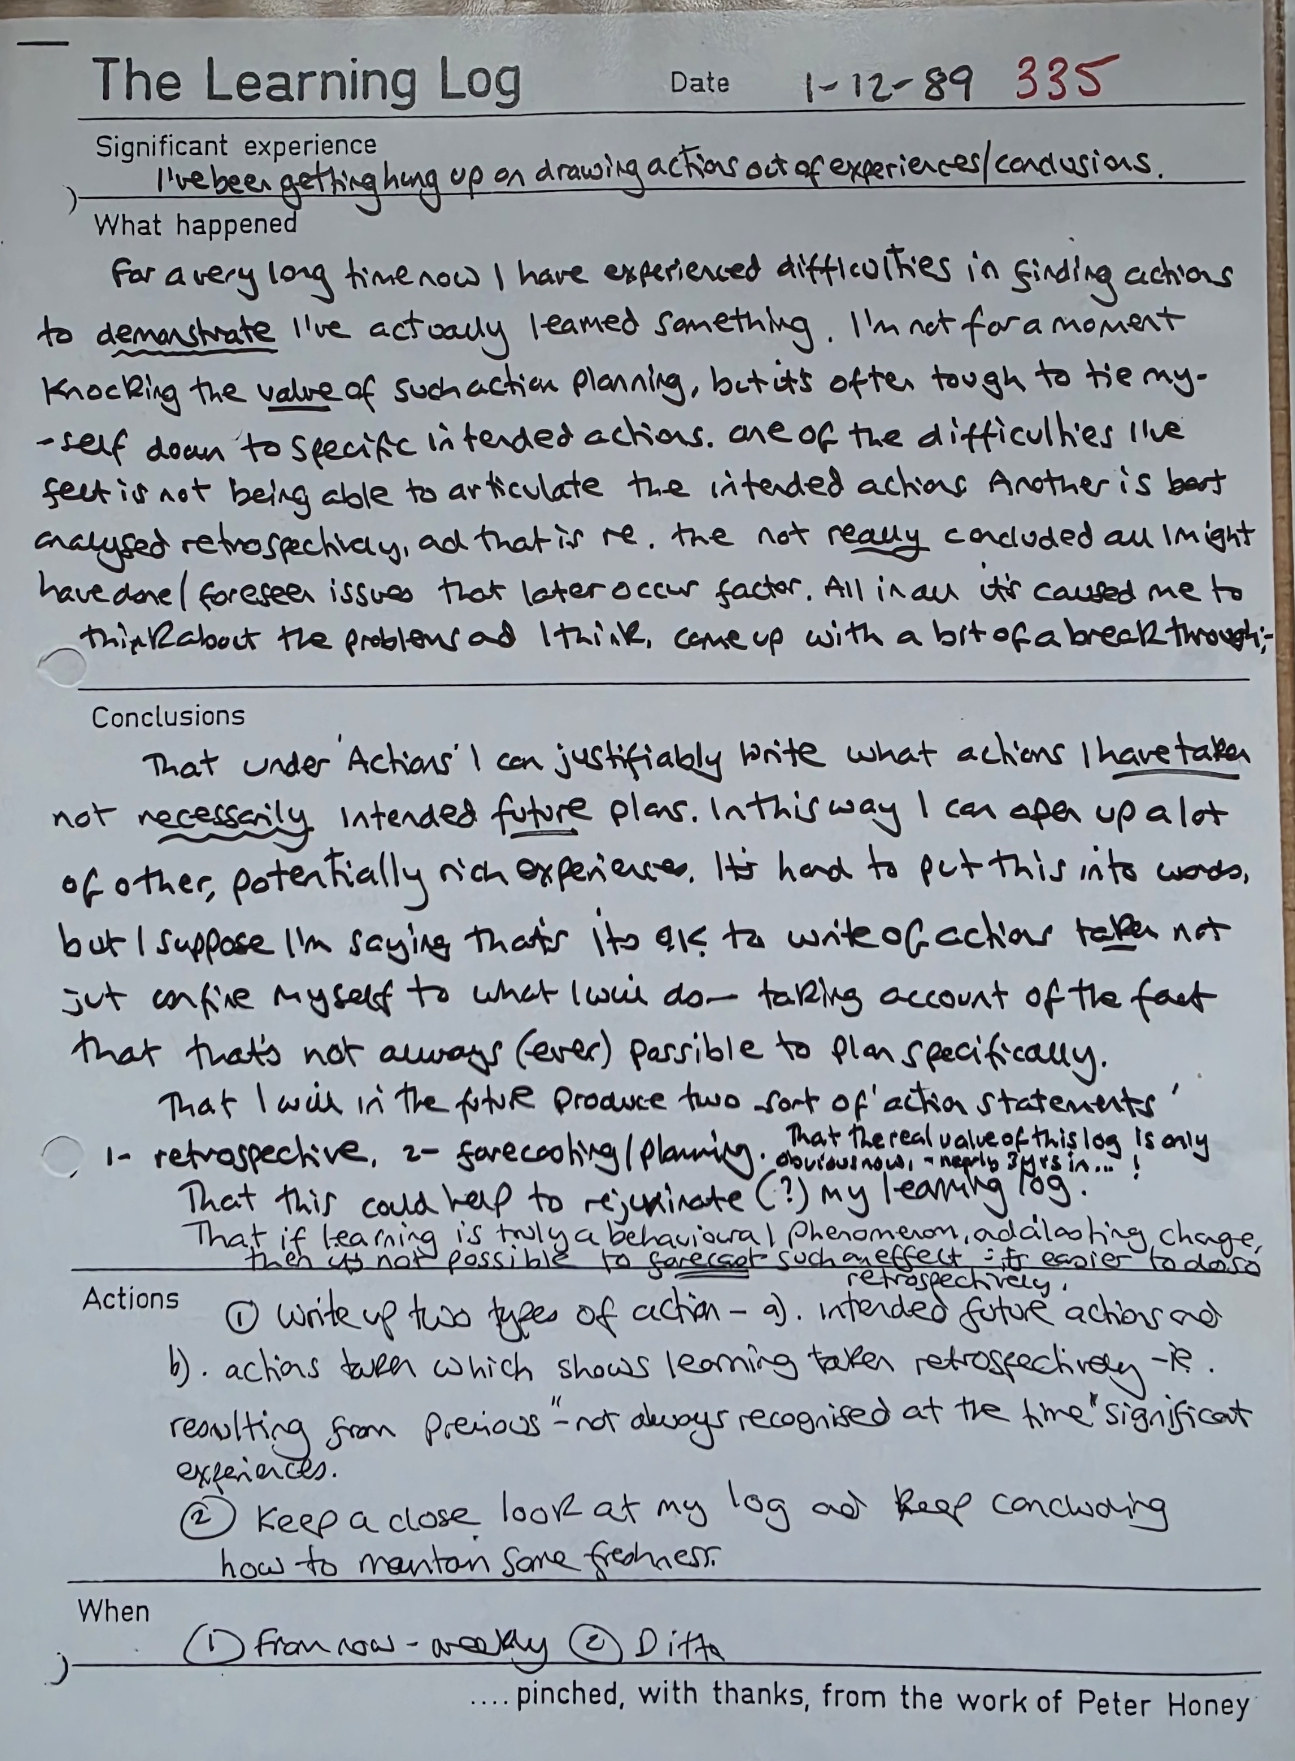 The Learning Log Date 1-12-89 335
Significant experience
I've been getting hung up on drawing actions out of experiences/conclusions.
What happened
For a very long time now I have experienced difficulties in finding actions
to demonstrate I've actually learned something. I'm not for a moment
knocking the value of such action planning, but it's often tough to tie my-
-self down to specific intended actions. One of the difficulties I've
felt is not being able to articulate the intended actions Another is best
analysed retrospectively, ad that is re. the not really concluded all I might
have done/foreseen issues that later occur factor. All in all it's caused me to
think about the problems ad I think, come up with a bit of a breakthrough;-
Conclusions
That under 'Actions' I can justifiably write what actions I have taken
not necessarily intended future plans. In this way I can open up a lot
of other, potentially rich experiences. It's hard to put this into words,
but I suppose I'm saying that's its O.K. to write of actions taken not
just confine myself to what I will do - taking account of the fact
that that's not always (ever) possible to plan specifically.
That I will in the future produce two sort of 'action statements'
1- retrospective, 2- forecasting/planning. That the real value of this log is only
obvious now, - nearly 3 yrs in... !
That this could help to rejuvinate (?) my learning log.
That if learning is truly a behavioural phenomenon, ad a lasting change,
then it's not possible to forecast such an effect it's easier to do so
retrospectively.
Actions
① Write up two types of action - a). intended future actions and
b). actions taken which shows learning taken retrospectively - ie.
resulting from previous "- not always recognised at the time" significant
experiences.
② Keep a close look at my log and keep concluding
how to mantain some freshness.
When
① From now - weekly ② Ditto
.... pinched, with thanks, from the work of Peter Honey